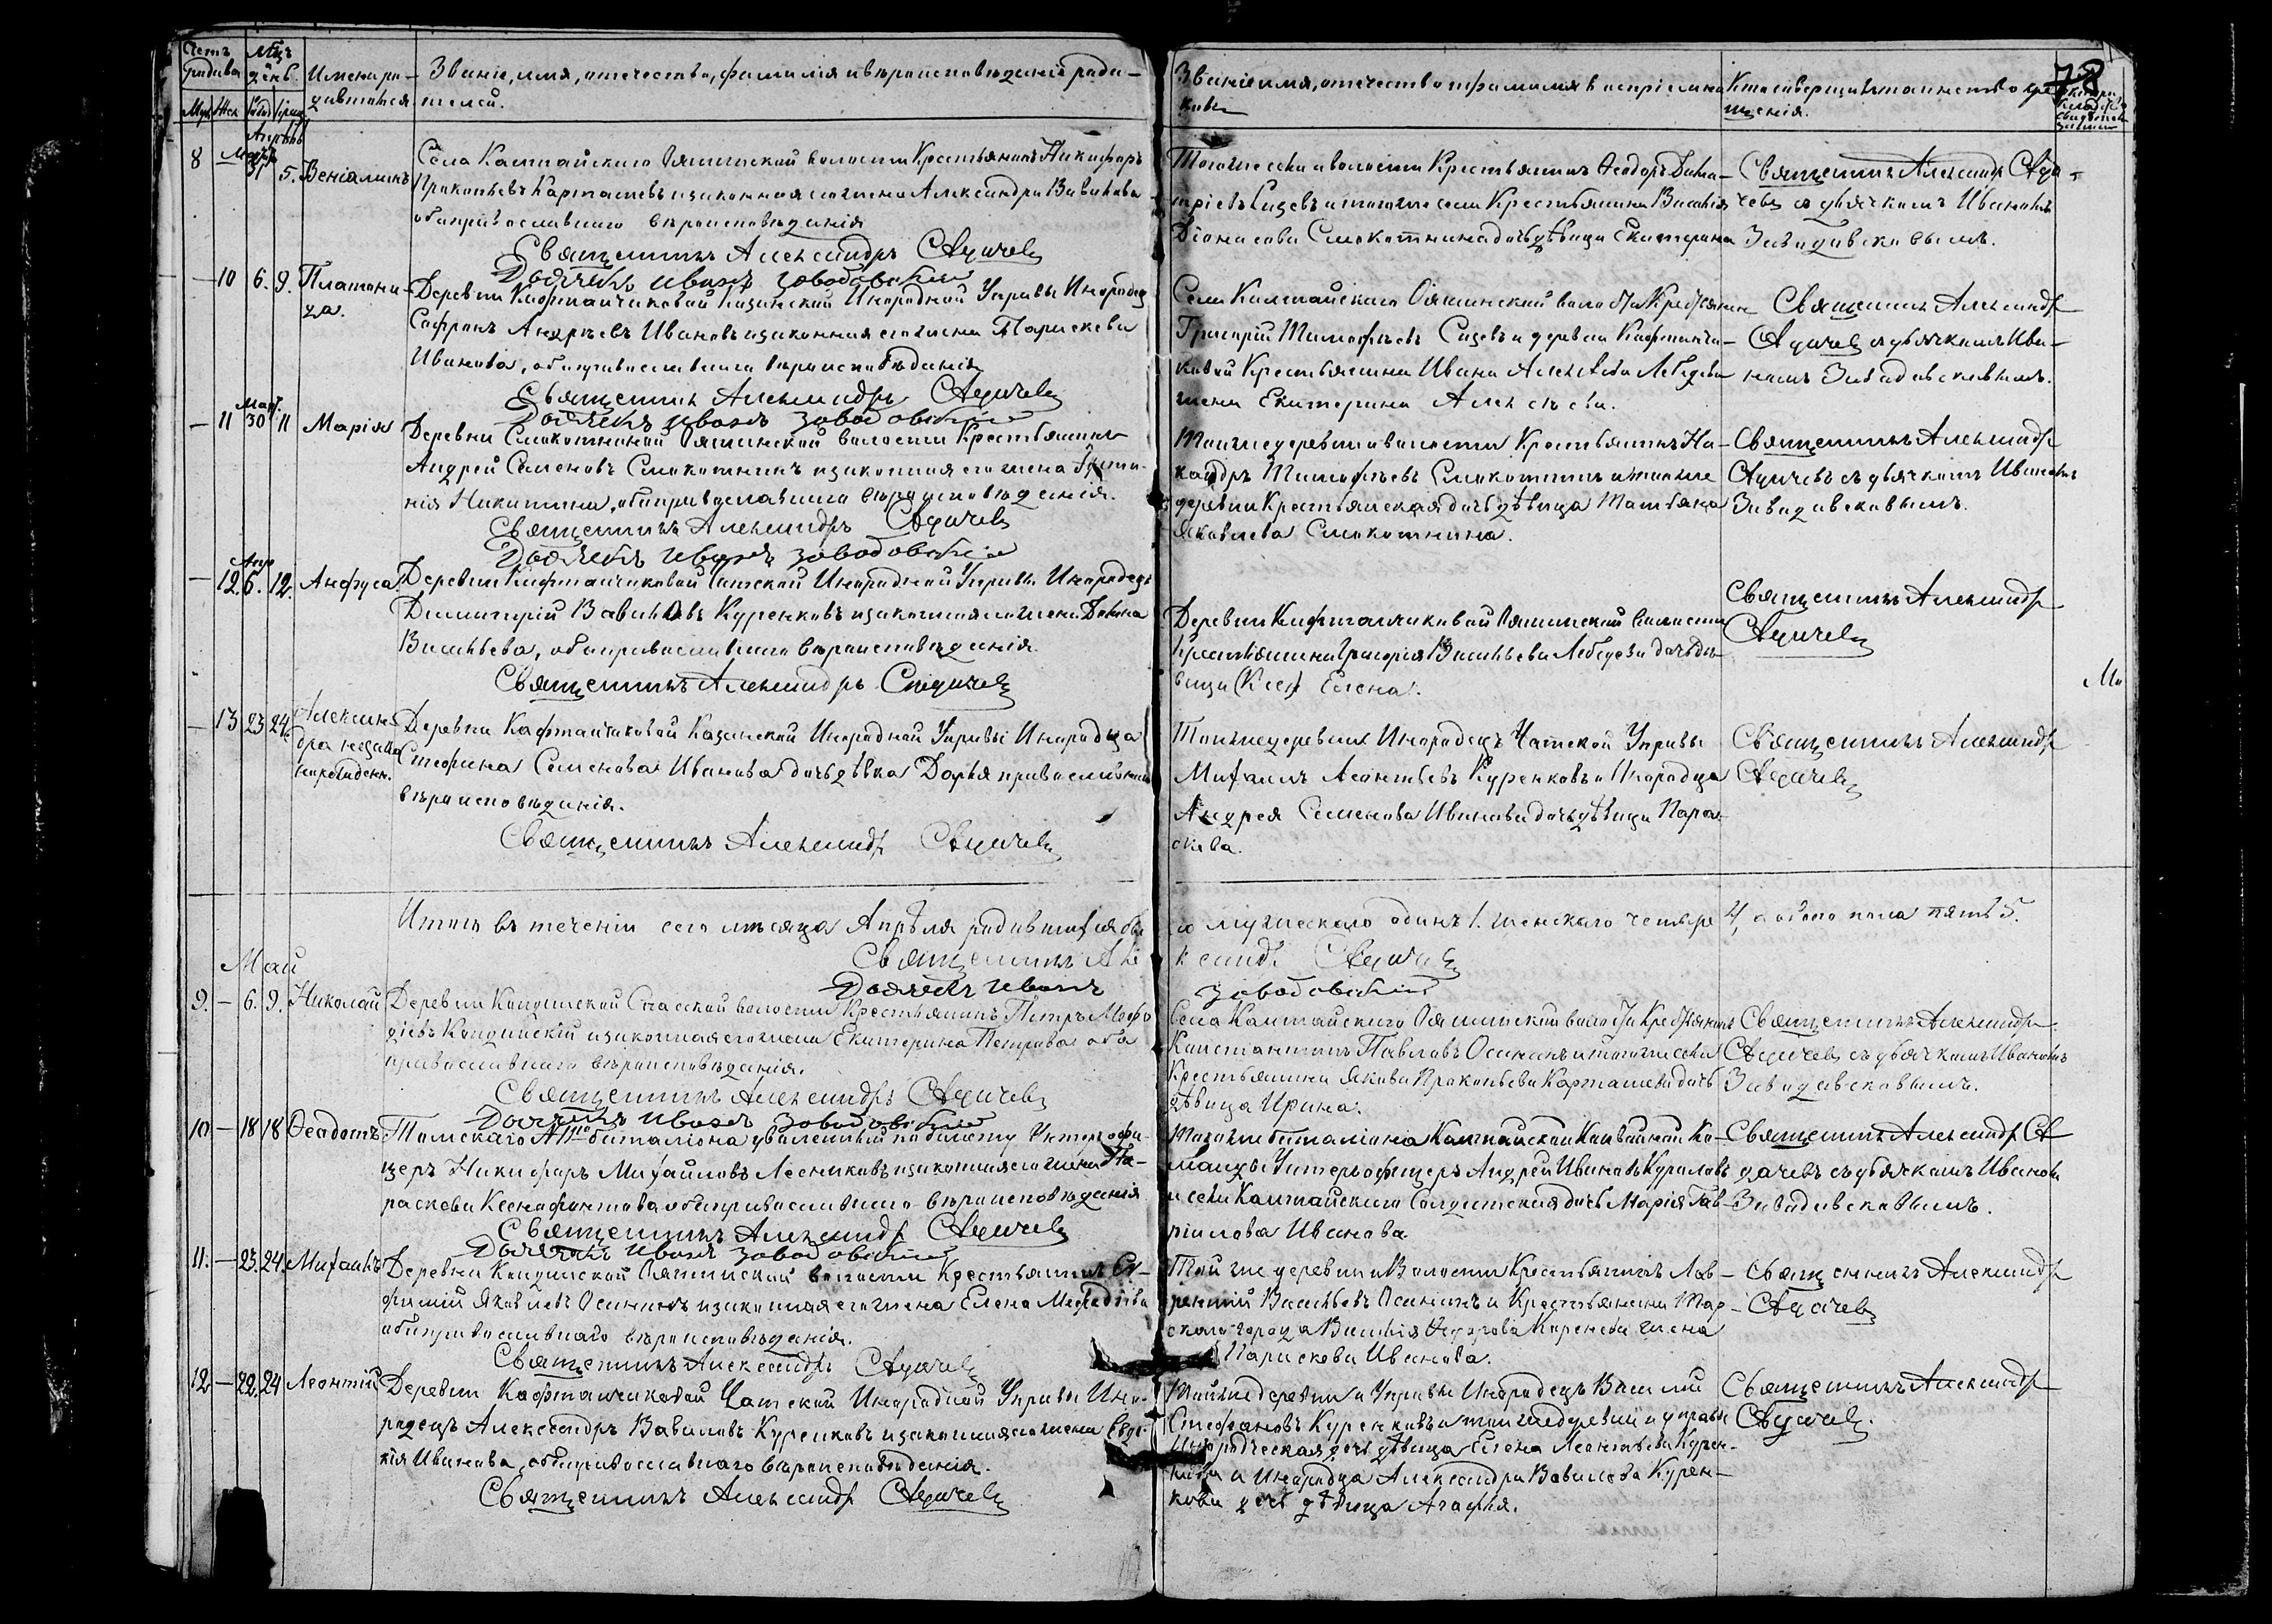 Счетъ родивш.
Мѣц. день.
Муж. Жен. рожд. крещ.
Имена родившихся
Званіе, имя, отечество, фамилія и вѣроисповѣданіе роди-
телей.
Апрѣль
8 — Март. 31 5. Веніаминъ
Села Калтайскаго Ояшинской волости Крестьянинъ Никифоръ
Прокопьевъ Карташевъ и законная его жена Александра Вавилова
оба православнаго вѣроисповѣданія
Священникъ Александръ
Дьячекъ Иванъ Заводовскій
— 10 6. 9. Платони-
да.
Деревни Кафтанчиковой Казанской Инородной Управы Инородец
Софронъ Андреевъ Ивановъ и законная его жена Парискева
Иванова, оба православнаго вѣроисповѣданія
Священникъ Александръ
Дьячекъ Иванъ Заводовскій
— 11 Март. 30 11 Марія
Деревни Смокотиной Ояшинской волости Крестьянинъ
Андрей Семеновъ Смокотнинъ и законная его жена
нія Никитина, оба православнаго вѣроисповѣданія.
Священникъ Александръ
Дьячекъ Иванъ Заводовскій
— 12. Апр. 6. 12. Анфуса.
Деревни Кафтанчиковой Чатской Инородной Управы Инородецъ
Димитрій Вавиловъ Куренковъ и законная его жена Домна
Васильева, оба православнаго вѣроисповѣданія.
Священникъ Александръ
— 13 23 24. Алексан-
дра незако
норожденн.
Деревни Кафтанчиковой Казанской Инородной Управы Инородца
Стефана Семенова Иванова дочь дѣвка Дарья православнаго
вѣроисповѣданія.
Священникъ Александр
Итого въ теченіи сего мѣсяца Апрѣля родившихся бы
Священникъ Але
Дьячекъ Иванъ
Май
9. — 6. 9. Николай
Деревни Кандинской Спасской волости Крестьянинъ Петръ Мефо
діевъ Кандинскій и законная его жена Екатерина Петрова оба
православнаго вѣроисповѣданія.
Священникъ Александръ
Дьячекъ Иванъ Заводовскій
10 — 18 18 Ѳеодотъ
Томскаго баталіона уволенный по билету Унтеръ офи-
церъ Никифоръ Михайловъ Лесниковъ и законная его жена Па-
раскева Ксенофонтова оба православнаго вѣроисповѣданія
Священникъ Александр
Дьячекъ Иванъ Заводовскій
11. — 23. 24. Михаилъ
Деревни Кандинской Ояшинской волости Крестьянинъ Ев-
фимій Яковлевъ Осининъ и законная его жена Елена Мефодіева
оба православнаго вѣроисповѣданія.
Священникъ Александръ
12 — 22. 24 Леонтій
Деревни Кафтанчиковой Чатской Инородной Управы Ино-
родецъ Александръ Вавиловъ Куренковъ и законная его жена Евдо-
кія Иванова, оба православнаго вѣроисповѣданія.
Священникъ Александр
78
Званіе имя, отечество и фамилія воспріемни
ковъ
Кто совершалъ таинство кре-
щенія.
Того же села и волости Крестьянинъ Ѳеодоръ Дими-
тріевъ Сизевъ и того же села Крестьянина Василія
Діонисова Смокотнина дочь дѣвица Екатерина
Священникъ Александр
съ дьячкомъ Иваномъ
Заводовскимъ.
Села Калтайскаго Ояшинской волости Крестьянин
Григорій Тимофѣевъ Сизевъ и деревни Кафтанчи-
ковой Крестьянина Ивана Алексѣева Лебедева
жена Екатерина Алексѣева.
Священникъ Александр
съ дьячкомъ Ива-
номъ Заводовскимъ.
Той же деревни и волости Крестьянинъ Ни-
кандръ Тимофѣевъ Смокотнинъ и той же
деревни Крестьянская дочь дѣвица Татьяна
Яковлева Смокотнина.
Священникъ Александр
съ дьячкомъ Иваномъ
Заводовскимъ.
Деревни Кафтанчиковой Ояшинской волости
Крестьянина Григорія Васильева Лебедева дочь дѣ-
вица Елена.
Священникъ Александр
Той же деревни Инородецъ Чатской Управы
Михаилъ Леонтьевъ Куренковъ и Инородца
Андрея Семенова Иванова дочь дѣвица Пара-
скева.
Священникъ Александр
ло мужескаго одинъ 1. женскаго четыре 4, а обоего пола пять 5.
ксандр
Заводовскій
Села Калтайскаго Ояшинской волости Крестьянинъ
Константинъ Павловъ Осининъ и того же села
Крестьянина Якова Прокопьева Карташева дочь
дѣвица Ирина.
Священникъ Александр
съ дьячкомъ Иваномъ
Заводовскимъ.
Того же баталіона Калтайской Конвойной Ко-
манды Унтеръ офицеръ Андрей Ивановъ Курилов
и села Калтайскаго Солдатская дочь Марія Гав-
ріилова Иванова.
Священникъ Александр
съ дьячкомъ Иваном
Заводовскимъ.
Той же деревни и Волости Крестьянинъ Лав-
рентій Васильевъ Осининъ и Крестьянина
города Василія Ѳедорова жена
Парискева Иванова.
Священникъ Александр
Той же деревни и Управы Инородецъ Василій
Стефановъ Куренковъ и той же деревни и управы
Инородческая дочь дѣвица Елена Леонтьева Курен-
кова и Инородца Александра Вавилова Курен-
кова дочь дѣвица Агафья.
Священникъ Александр